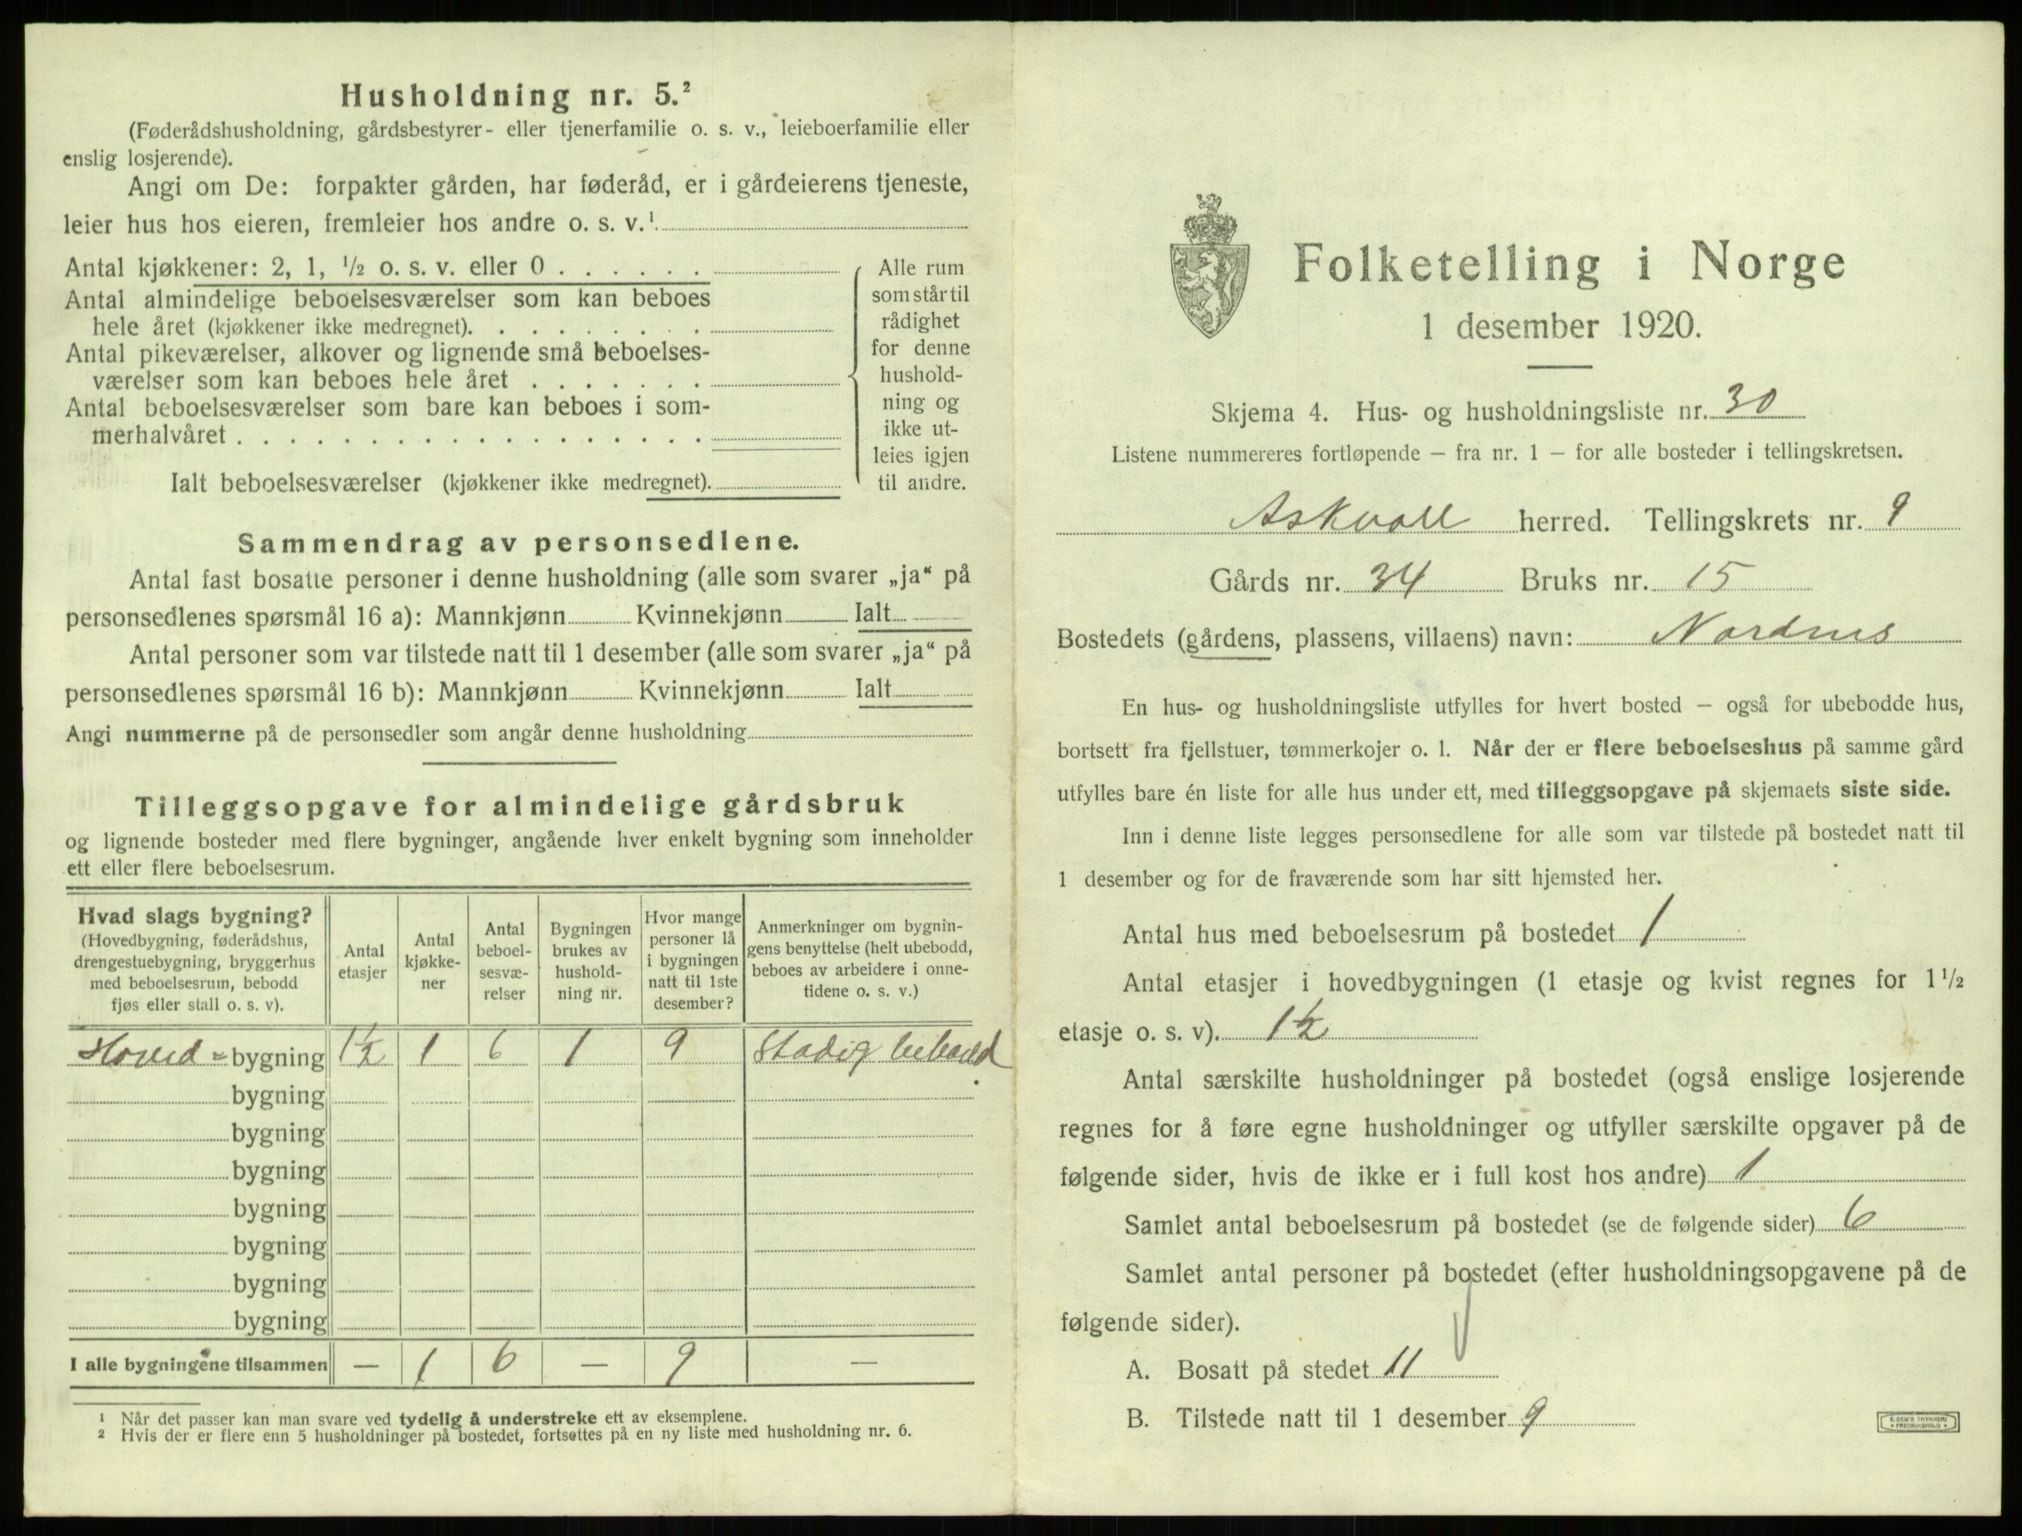 Husholdning nr. 5.²
(Føderådshusholdning, gårdsbestyrer- eller tjenerfamilie o. s. v., leieboerfamilie eller
enslig losjerende).
Angi om De: forpakter gården, har føderåd, er i gårdeierens tjeneste,
leier hus hos eieren, fremleier hos andre o. s. v.¹
Antal kjøkkener: 2, 1, ½ o. s. v. eller 0 . . . . . .
Antal almindelige beboelsesværelser som kan beboes
hele året (kjøkkener ikke medregnet). . . . . . . . .
Antal pikeværelser, alkover og lignende små beboelses-
værelser som kan beboes hele året . . . . . . .
Antal beboelsesværelser som bare kan beboes i som-
merhalvåret . . . . . . . . . . . . . . . . . .
Ialt beboelsesværelser (kjøkkener ikke medregnet).
Alle rum
som står til
rådighet
for denne
hushold-
ning og
ikke ut-
leies igjen
til andre.
Sammendrag av personsedlene.
Antal fast bosatte personer i denne husholdning (alle som svarer „ja“ på
personsedlenes spørsmål 16 a): Mannkjønn Kvinnekjønn Ialt
Antal personer som var tilstede natt til 1 desember (alle som svarer „ja“ på
personsedlenes spørsmål 16 b): Mannkjønn Kvinnekjønn Ialt
Angi nummerne på de personsedler som angår denne husholdning
Tilleggsopgave for almindelige gårdsbruk
og lignende bosteder med flere bygninger, angående hver enkelt bygning som inneholder
ett eller flere beboelsesrum.
Hvad slags bygning?
(Hovedbygning, føderådshus,
drengestuebygning, bryggerhus
med beboelsesrum, bebodd
fjøs eller stall o. s. v).
Antal
etasjer
Antal
kjøkke-
ner
Antal
beboel-
sesvæ-
relser
Bygningen
brukes av
hushold-
ning nr.
Hvor mange
personer lå
i bygningen
natt til 1ste
desember?
Anmerkninger om bygnin-
gens benyttelse (helt ubebodd,
beboes av arbeidere i onne-
tidene o. s. v.)
Hoved = bygning 1½ 1 6 1 9 Stadig bebodd
bygning
bygning
bygning
bygning
bygning
bygning
bygning
I alle bygningene tilsammen — 1 6 — 9 —
¹ Når det passer kan man svare ved tydelig å understreke ett av eksemplene.
² Hvis der er flere enn 5 husholdninger på bostedet, fortsettes på en ny liste med husholdning nr. 6.
Folketelling i Norge
1 desember 1920.
Skjema 4. Hus- og husholdningsliste nr. 30
Listene nummereres fortløpende – fra nr. 1 – for alle bosteder i tellingskretsen.
Askvoll herred. Tellingskrets nr. 9
Gårds nr. 34 Bruks nr. 15
Bostedets (gårdens, plassens, villaens) navn: Nordnes
En hus- og husholdningsliste utfylles for hvert bosted – også for ubebodde hus,
bortsett fra fjellstuer, tømmerkojer o. l. Når der er flere beboelseshus på samme gård
utfylles bare én liste for alle hus under ett, med tilleggsopgave på skjemaets siste side.
Inn i denne liste legges personsedlene for alle som var tilstede på bostedet natt til
1 desember og for de fraværende som har sitt hjemsted her.
Antal hus med beboelsesrum på bostedet 1
Antal etasjer i hovedbygningen (1 etasje og kvist regnes for 1½
etasje o. s. v). 1½
Antal særskilte husholdninger på bostedet (også enslige losjerende
regnes for å føre egne husholdninger og utfyller særskilte opgaver på de
følgende sider, hvis de ikke er i full kost hos andre) 1
Samlet antal beboelsesrum på bostedet (se de følgende sider) 6
Samlet antal personer på bostedet (efter husholdningsopgavene på de
følgende sider).
A. Bosatt på stedet 11
B. Tilstede natt til 1 desember 9